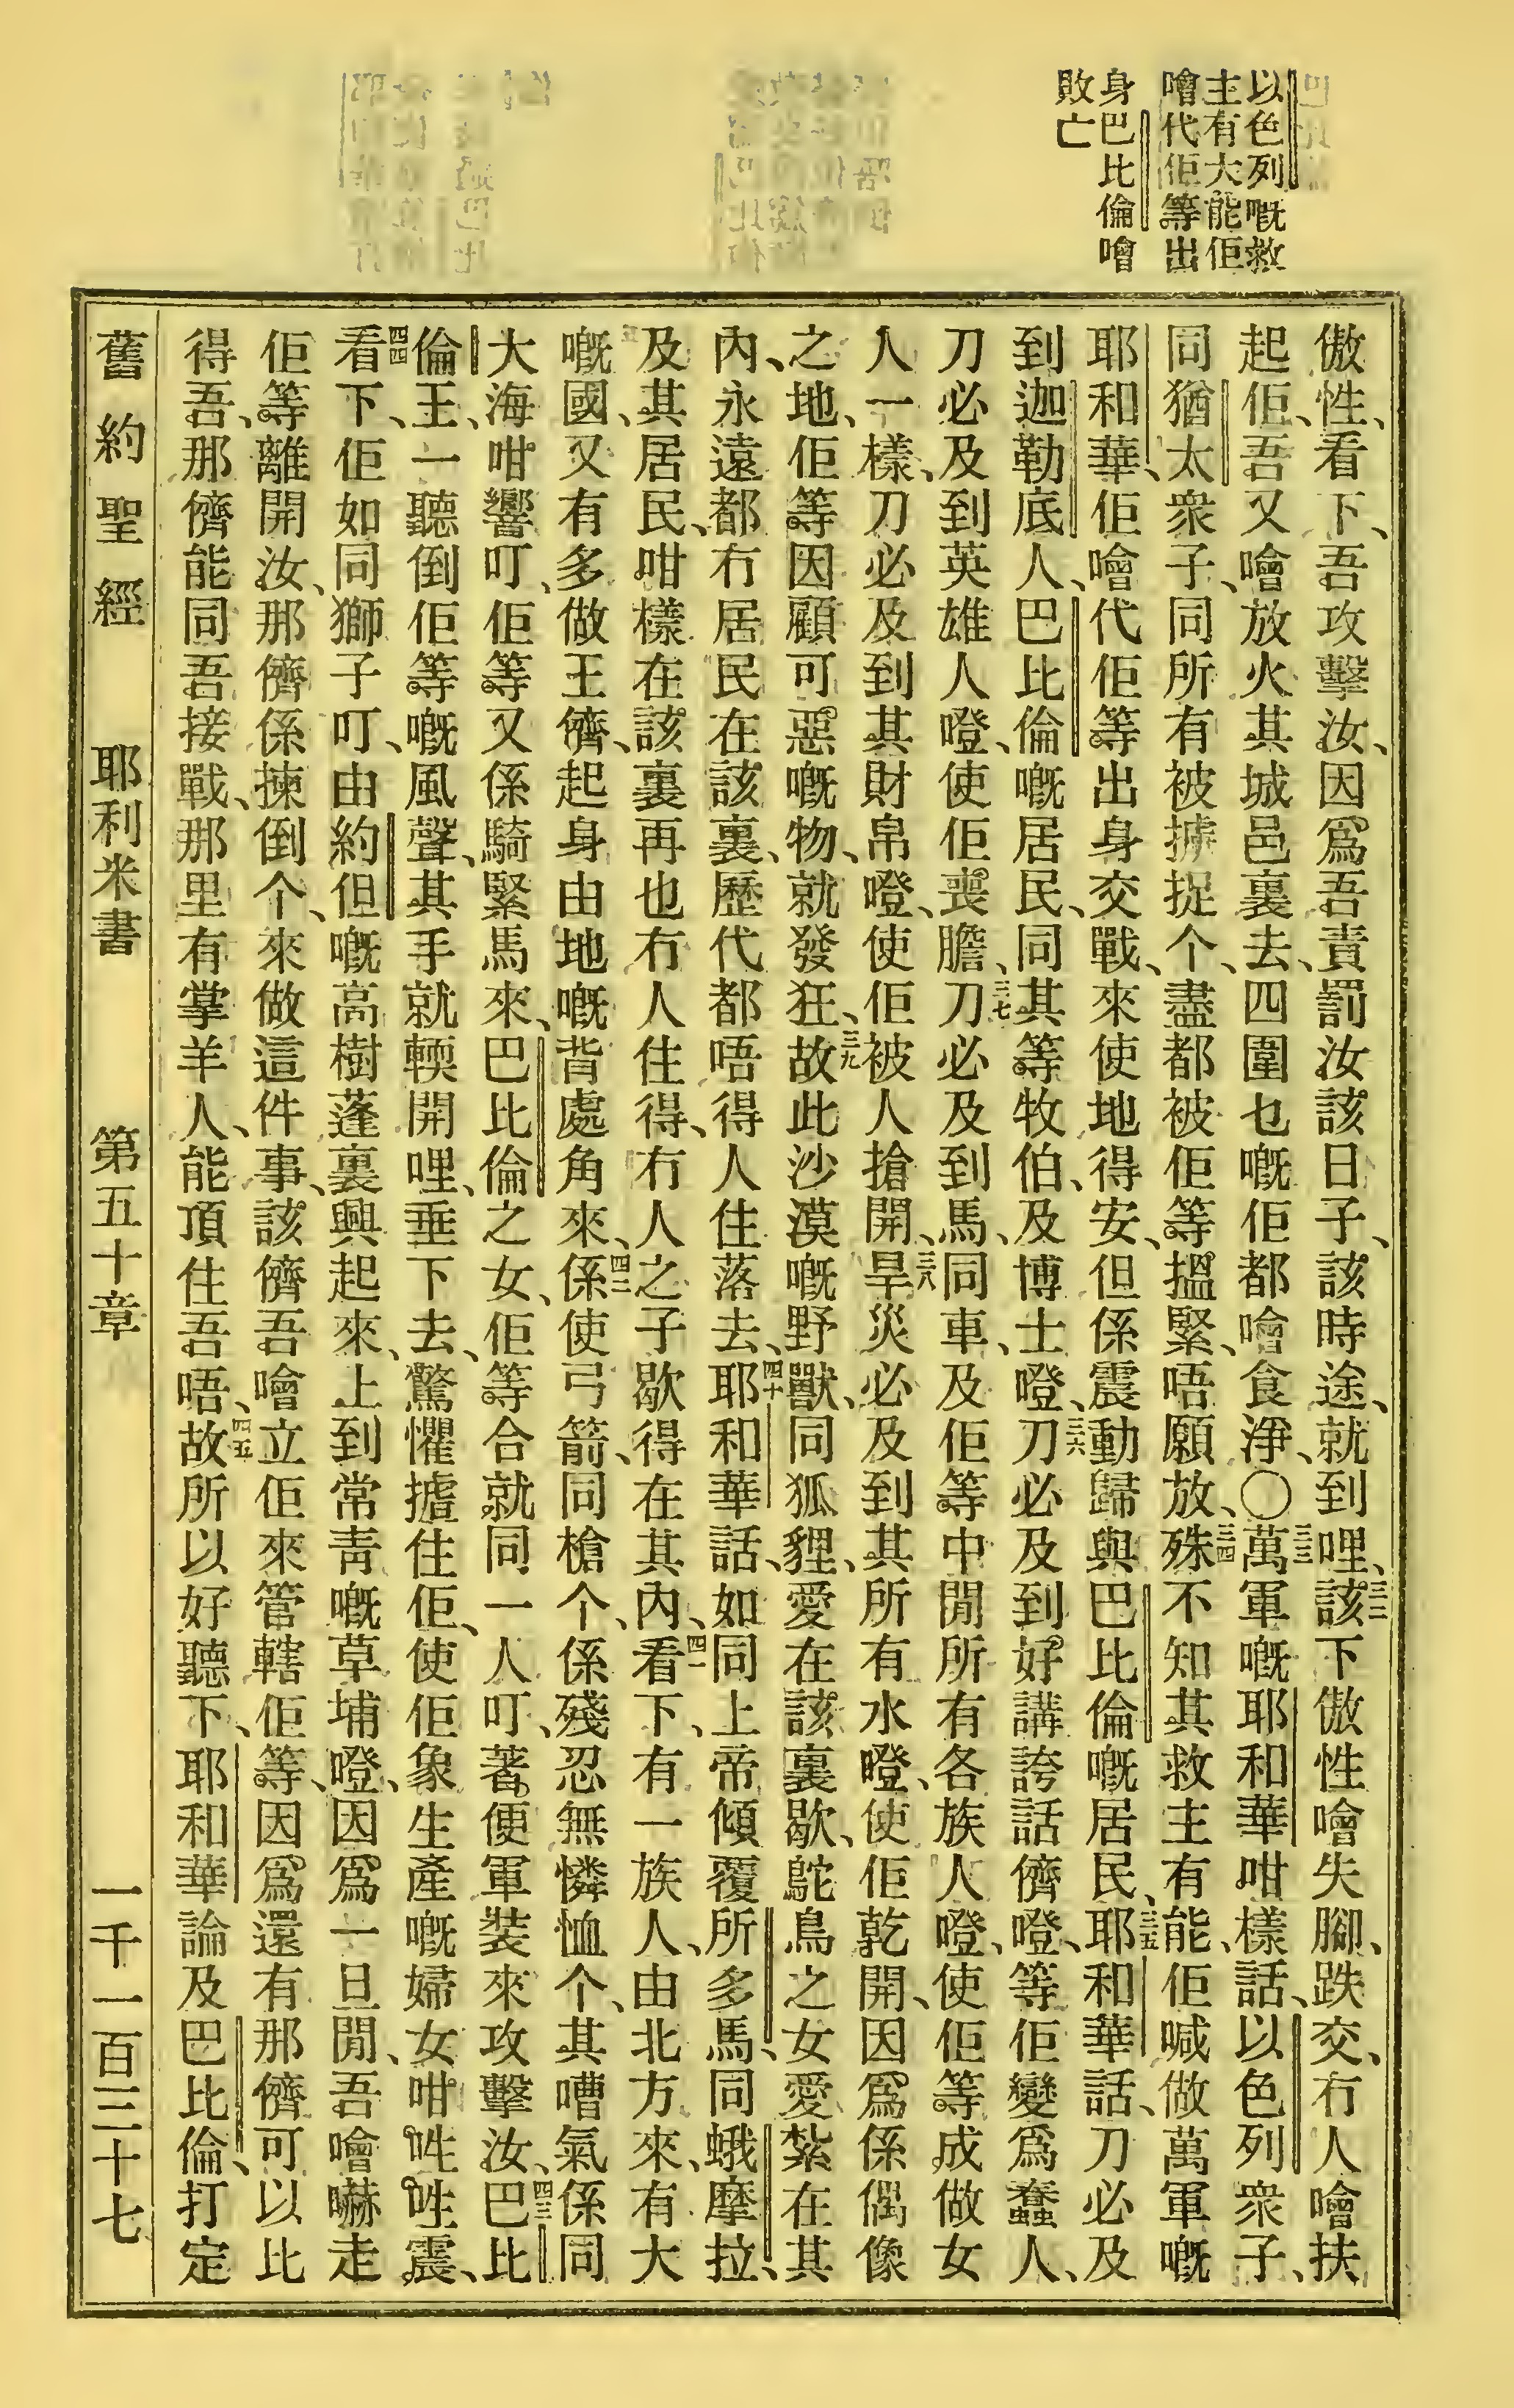 以色列嘅救
主有大能佢
噲代佢等出
身巴比倫噲
敗亡
傲性、看下、吾攻擊汝、因爲吾責罰汝該日子、該時途、就到哩、三二該下傲性噲失腳、跌交、冇人噲扶
起佢、吾又噲放火其城邑裏去、四圍乜嘅佢都噲食淨〇三三萬軍嘅耶和華咁樣話、以色列衆子、
同猶太衆子、同所有被擄捉个、盡都被佢等搵緊、唔願放、三四殊不知其救主有能、佢喊做萬軍嘅
耶和華、佢噲代佢等出身交戰、來使地得安、但係震動歸與巴比倫嘅居民、三五耶和華話、刀必及
到迦勒底人、巴比倫嘅居民、同其等牧伯、及博士噔、三六刀必及到好講誇話儕噔、等佢變爲蠢人、
刀必及到英雄人噔、使佢喪膽、三七刀必及到馬、同車、及佢等中間所有各族人噔、使佢等成做女
人一樣、刀必及到其財帛噔、使佢被人搶開、三八旱災必及到其所有水噔、使佢乾開、因爲係偶像
之地、佢等因顧可惡嘅物、就發狂、三九故此沙漠嘅野獸、同狐狸、愛在該裏歇、鴕鳥之女愛紮在其
內、永遠都冇居民在該裏、歷代都唔得人住落去、四十耶和華話、如同上帝傾覆所多馬、同蛾摩拉、
及其居民、咁樣在該裏再也冇人住得、冇人之子歇得在其內、四一看下、有一族人、由北方來、有大
嘅國、又有多做王儕、起身由地嘅背處角來、四二係使弓箭、同槍个、係殘忍無憐恤个、其嘈氣係同
大海咁響叮、佢等又係騎緊馬來、巴比倫之女、佢等合就同一人叮、著便軍裝來攻擊汝、四三巴比
倫王、一聽倒佢等嘅風聲、其手就輭開哩、垂下去、驚懼摣住佢、使佢象生產嘅婦女咁𠵇𠵇震、
四四看下、佢如同獅子叮、由約但嘅高樹蓬裏興起來、上到常靑嘅草埔噔、因爲一旦間、吾噲嚇走
佢等離開汝、那儕係揀倒个、來做這件事、該儕吾噲立佢來管轄佢等、因爲還有那儕可以比
得吾、那儕能同吾接戰、那里有掌羊人、能頂住吾唔、四五故所以好聽下、耶和華論及巴比倫、打定
舊約聖經　耶利米書　第五十章　一千一百三十七